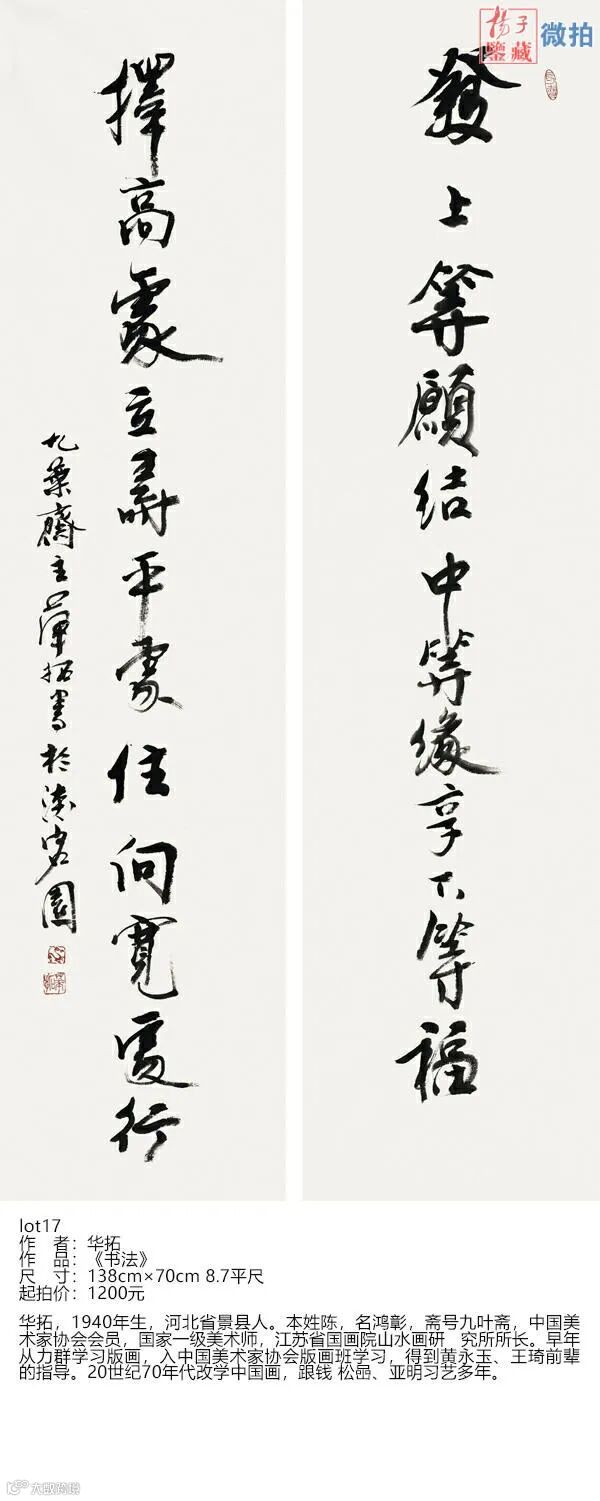 揚子
鑒藏
微拍
發上等願結中等緣享下等福
擇高處立尋平處住向寬處行
九葉齋主華拓書於園
lot17
作 者：华拓
作 品：《书法》
尺 寸：138cm×70cm 8.7平尺
起拍价：1200元
华拓，1940年生，河北省景县人。本姓陈，名鸿彰，斋号九叶斋，中国美
术家协会会员，国家一级美术师，江苏省国画院山水画研 究所所长。早年
从力群学习版画，入中国美术家协会版画班学习，得到黄永玉、王琦前辈
的指导。20世纪70年代改学中国画，跟钱 松喦、亚明习艺多年。
大数跨境